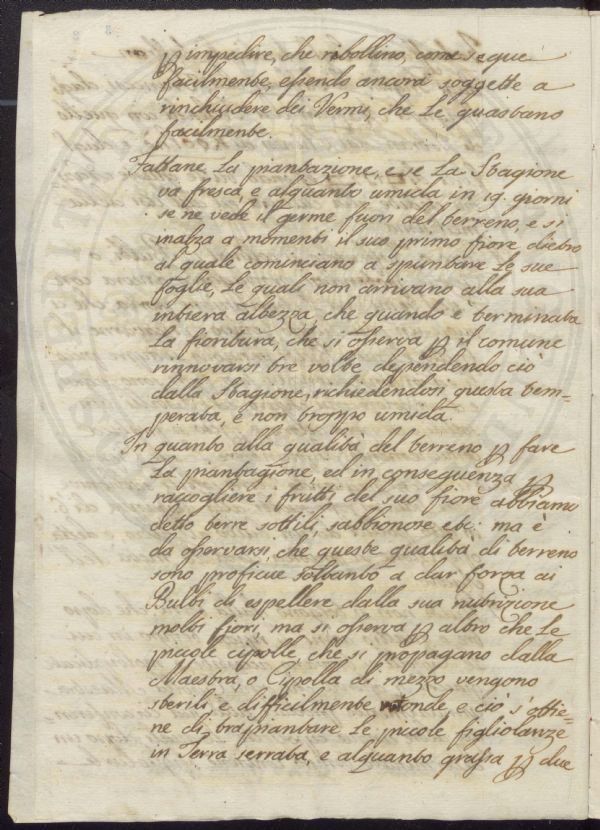 ꝑ impedire, che ribollino, come segue
facilmente, essendo ancora soggette a
rinchiudere dei Vermi, che le guastano
facilmente.
Fattane la piantazione, e se la Stagione
va fresca e alquanto umida in 19. giorni
se ne vede il germe fuori del terreno, e si
inalza a momenti il suo primo fiore dietro
al quale cominciano a spuntare le sue
foglie, le quali non arrivano alla sua
intiera altezza, che quando è terminata
la fioritura, che si osserva ꝑ il comune
rinnovarsi tre volte dependendo ciò
dalla Stagione, richiedendosi questa tem=
perata, e non troppo umida.
In quanto alla qualità del terreno ꝑ fare
la piantagione, ed in conseguenza ꝑ
raccogliere i frutti del suo fiore abbiamo
detto terre sottili, sabbionose etc: ma è
da osservarsi, che queste qualità di terreno
sono proficue soltanto a dar forza ai
Bulbi di espellere dalla sua nutrizione
molti fiori, ma si osserva ꝑ altro che le
picole cipolle, che si propagano dalla
Maestra, o Cipolla di mezzo vengono
sterili, e difficilmente rotonde, e ciò s'ottie=
ne di trapiantare le picole figliolanze
in Terra serrata, e alquanto grassa ꝑ due